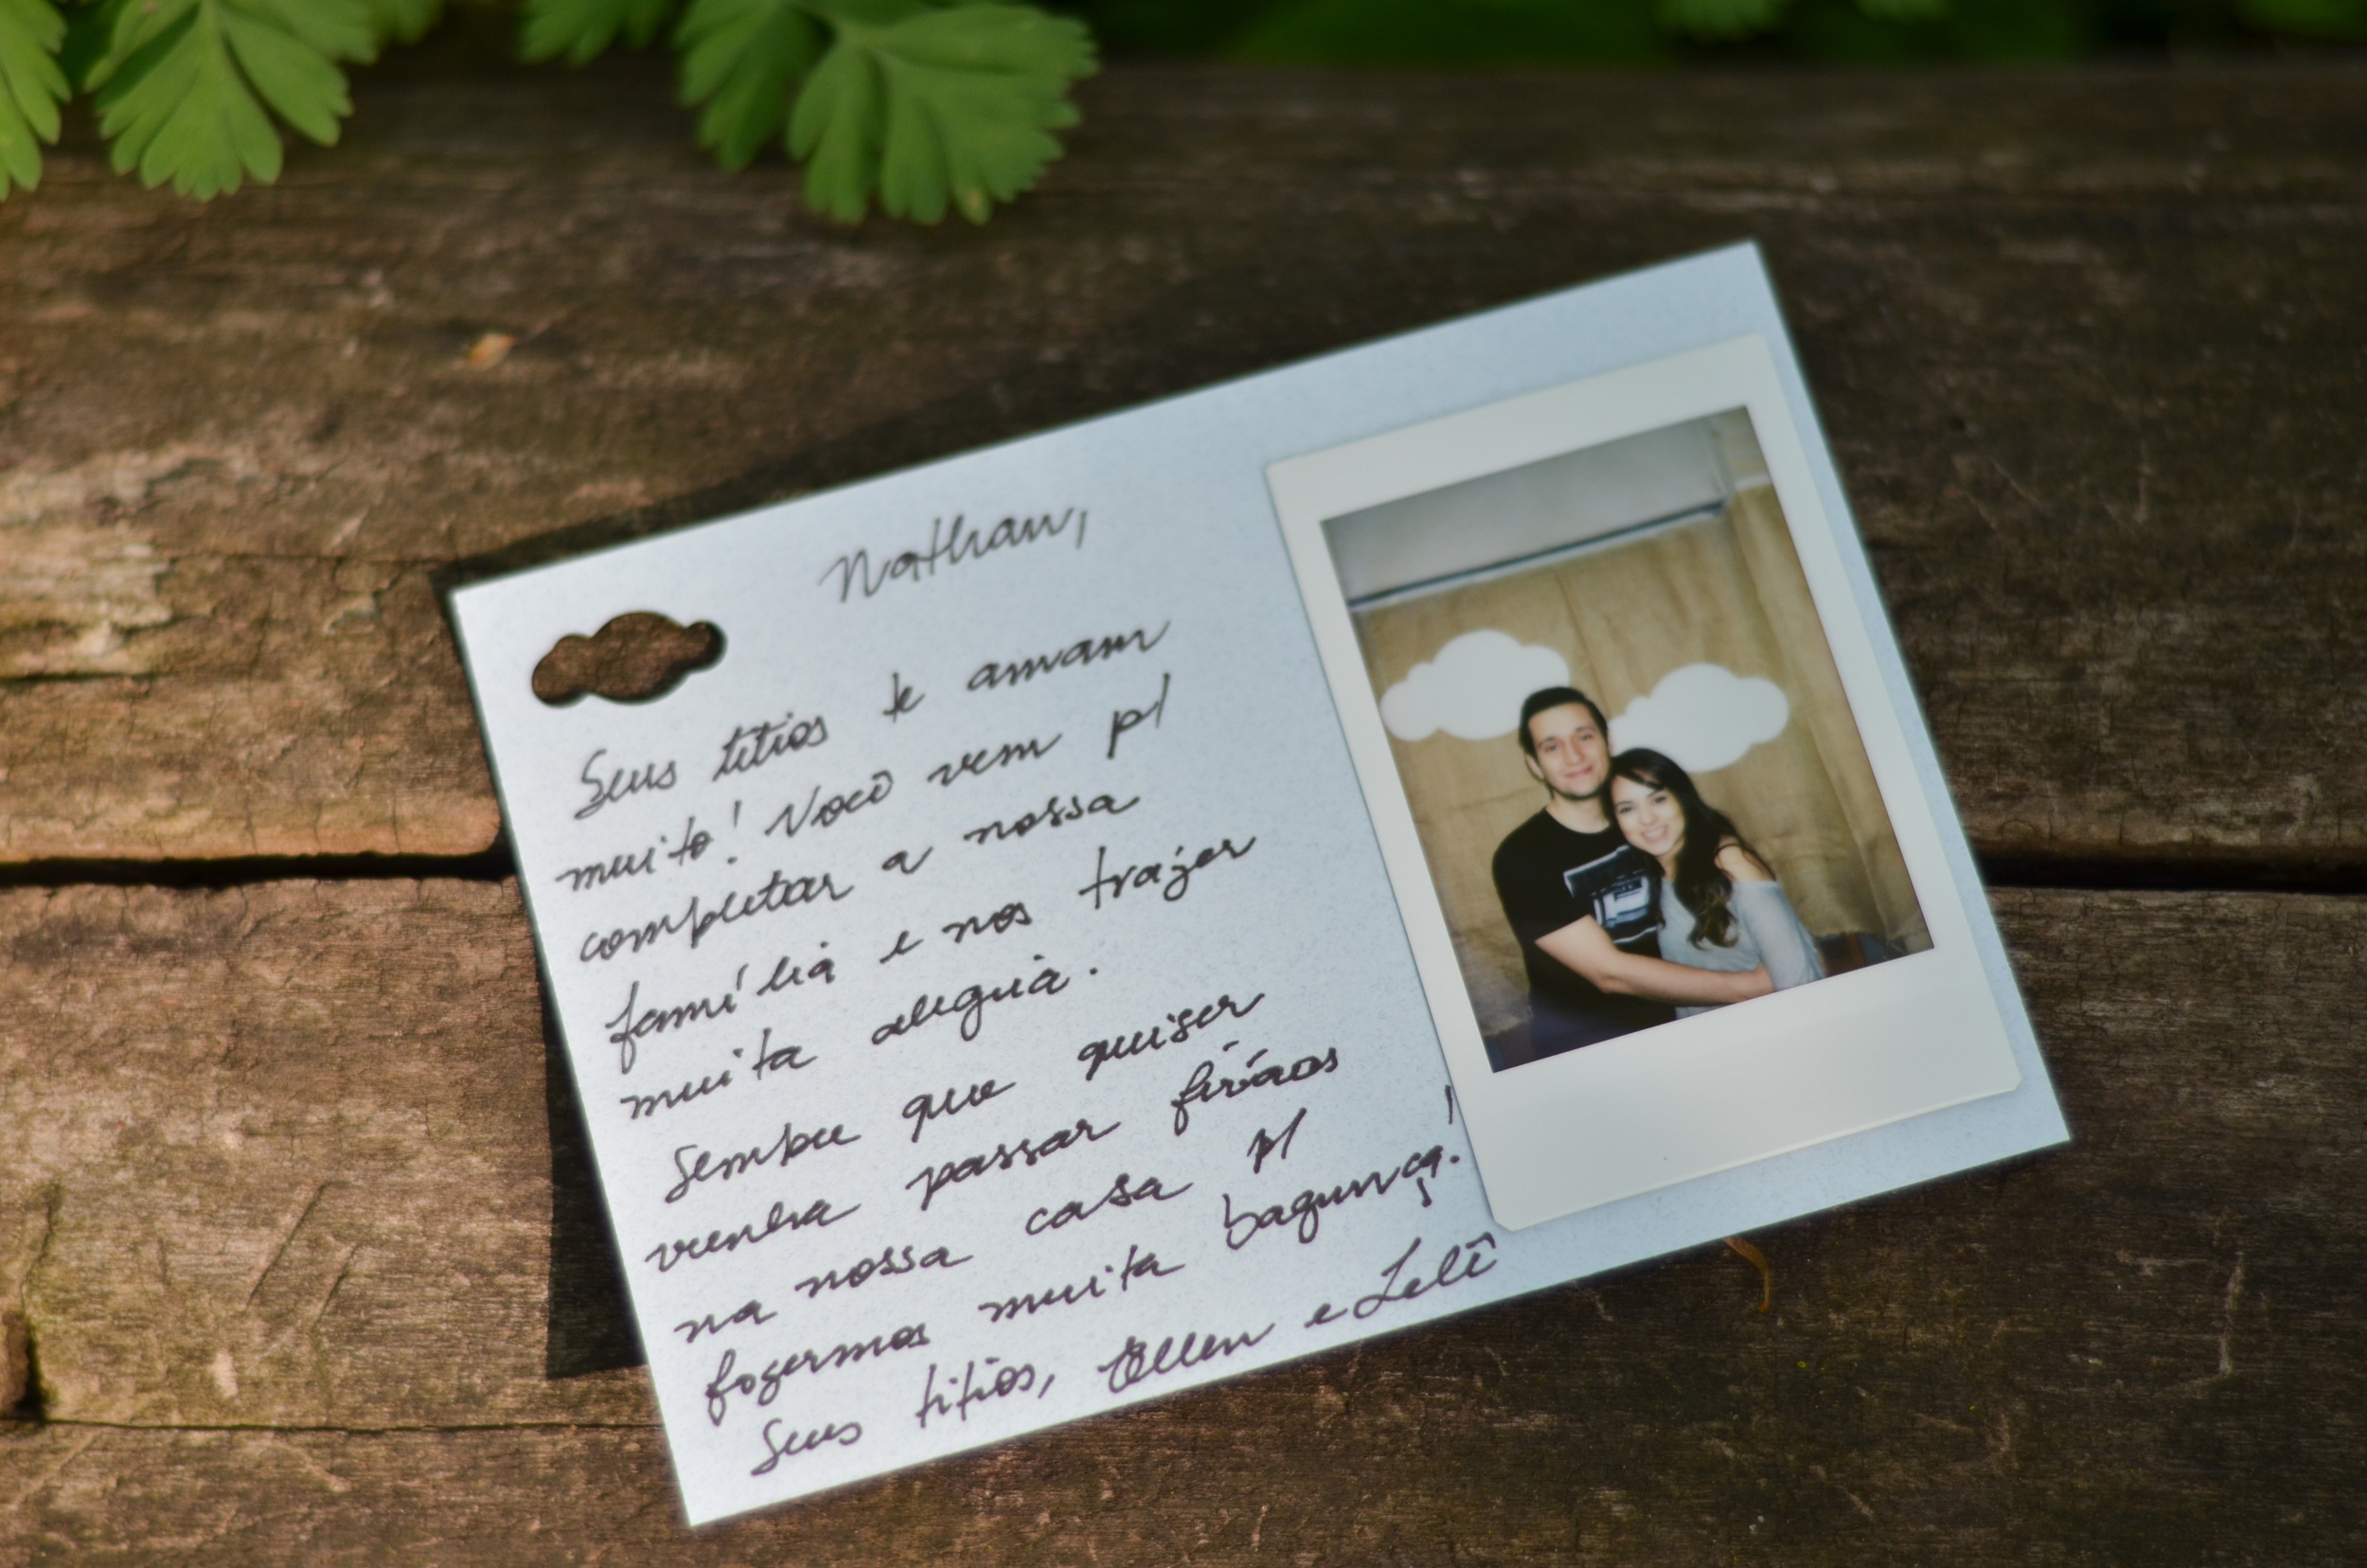 Nathan,
Seus titios te amam
muito! Você vem p/
completar a nossa
família e nos trazer
muita alegria.
Sempre que quiser
venha passar férias
na nossa casa p/
fazermos muita bagunça!
Seus titios, Ellen e Lelê